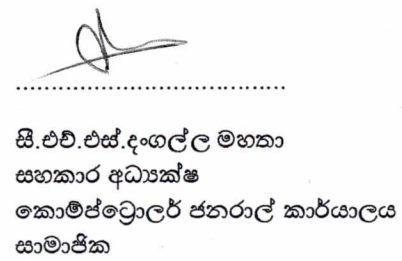 සී.එච්.එස්.දංගල්ල මහතා
සහකාර අධ්‍යක්ෂ
කොම්ප්ට්‍රොලර් ජනරාල් කාර්යාලය
සාමාජික